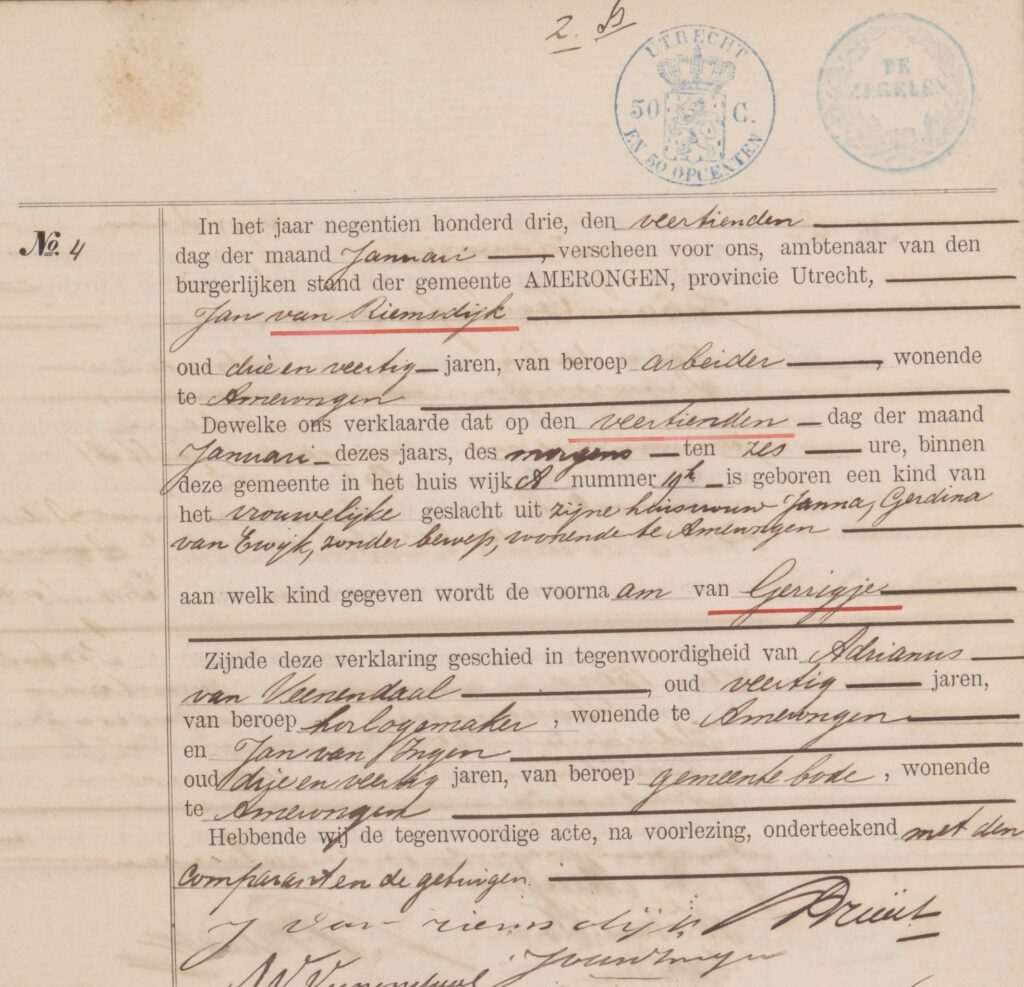 2.
UTRECHT
50 C.
EN 50 OPCENTEN
TE
ZEGELEN
No. 4
In het jaar negentien honderd drie, den veertienden
dag der maand Januari, verscheen voor ons, ambtenaar van den
burgerlijken stand der gemeente AMERONGEN, provincie Utrecht,
Jan van Riemsdijk
oud drie en veertig jaren, van beroep arbeider, wonende
te Amerongen
Dewelke ons verklaarde dat op den veertienden dag der maand
Januari dezes jaars, des morgens ten zes ure, binnen
deze gemeente in het huis wijk A nummer is geboren een kind van
het vrouwelijke geslacht uit zijne huisvrouw Janna, Gerdina
van Ewijk, zonder beroep, wonende te Amerongen
aan welk kind gegeven wordt de voornaam van Gerrigje
Zijnde deze verklaring geschied in tegenwoordigheid van Adrianus
van Veenendaal, oud veertig jaren,
van beroep horlogemaker, wonende te Amerongen
en Jan van Ingen
oud drie en veertig jaren, van beroep gemeentebode, wonende
te Amerongen
Hebbende wij de tegenwoordige acte, na voorlezing, onderteekend met den
comparant en de getuigen.
J van riemsdijk